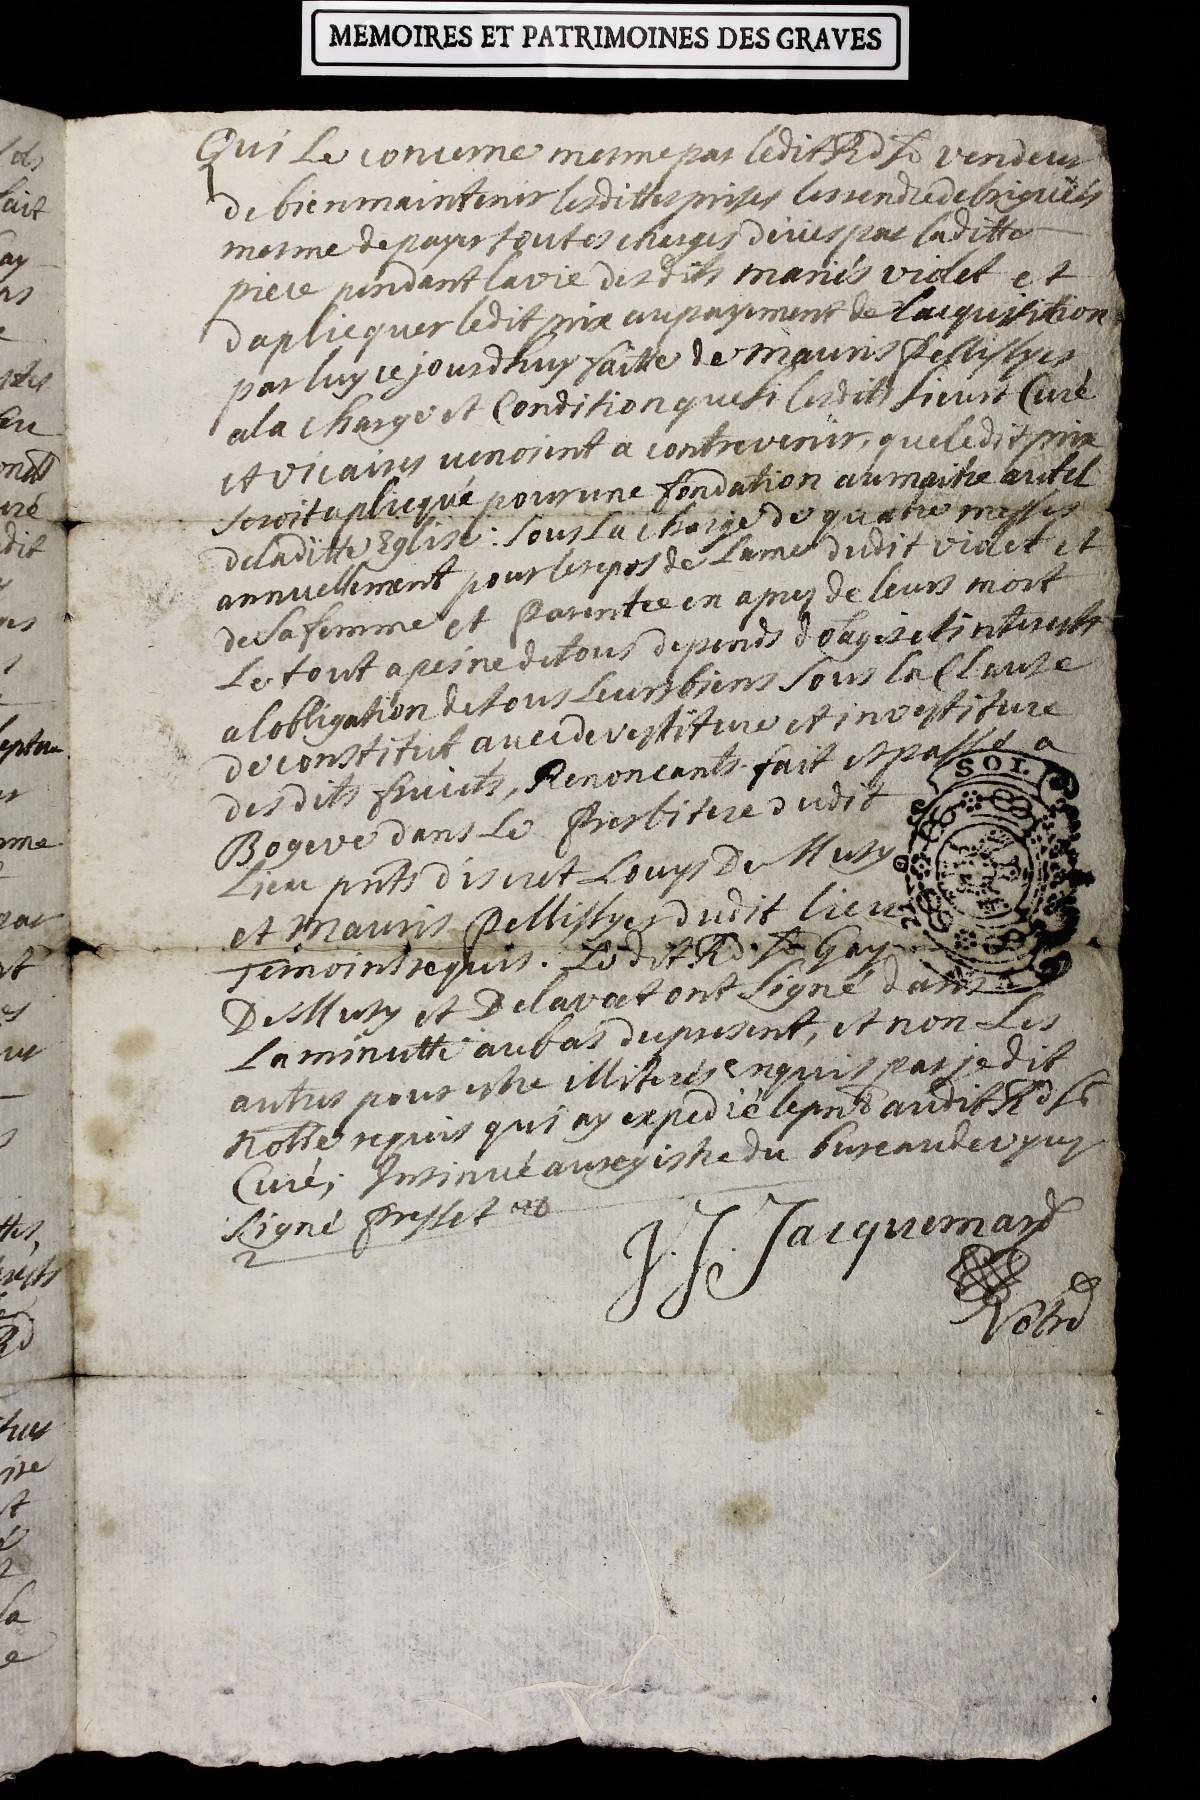 MEMOIRES ET PATRIMOINES DES GRAVES
Qui Le concerne mesme par ledit Rd Sr vendeur
de bien maintenir lesdittes prises les rendre
mesme de payer toutes charges deües par laditte
piece pendant la vie desdits mariés violet et
d apliecquer ledit prix au payement de lacquisition
par luy ce jourdhuy faitte de Mauris Pellissyer
a la charge et Condition que si lesdits sieurs Curé
et vicaires venoient a contrevenir, que ledit prix
seroit apliequé pour une fondation au maitre autel
de laditte Eglise: sous la charge de quatre messes
annuellement pour le repos de Lame dudit violet et
de Sa femme et Parentee en apres de leurs mort
Le tout a peine de tous depends et interests
a lobligation de tous Leurs biens sous la Clause
de constitut avec devestiture et investiture
des dits fruicts, Renonceants. fait et passé a
Bogeve dans Le Presbitere dudit
Lieu pnts discret Louys De Musy
et Mauris Pellissyer dudit lieu
Temoins requis. Ledit Rd Sr Gay
De Musy et Delavoet ont Signé dans
La minutte au bas du present, et non Les
autres pour estre illiterés enquis par je dit
Nottre requis qui ay expedié le pnt audit Rd Sr
Curé; Insinué au registre du bureau de vyuz
Signé Presset
SOL
2
J. J. Jacquemard
Notre